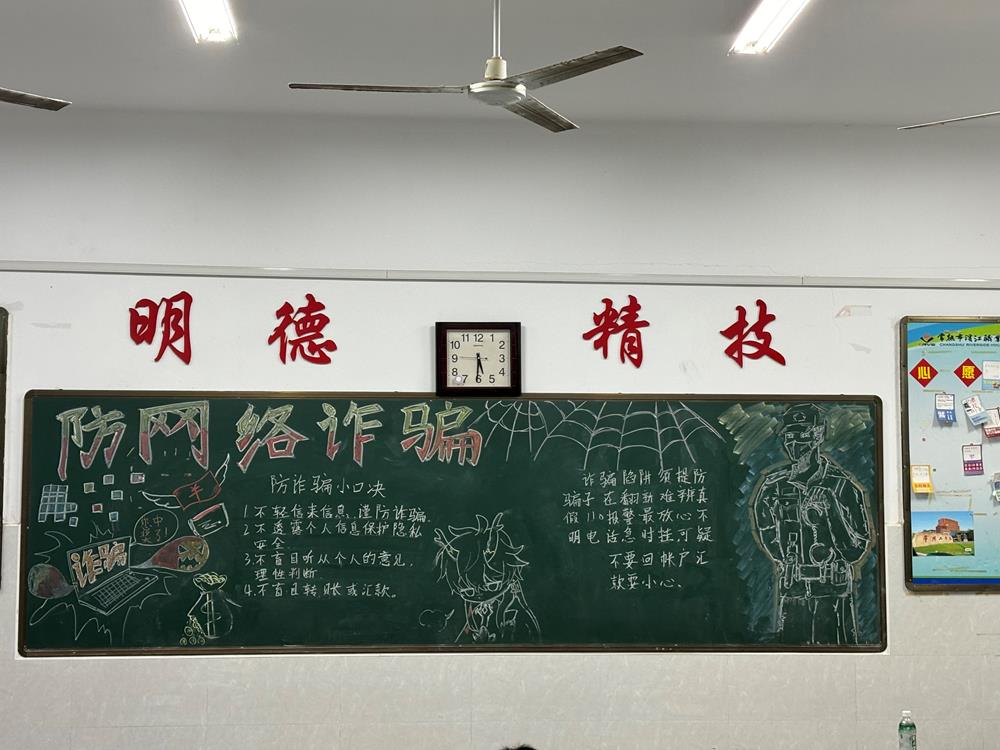 明 德 精 技
12 1 2 3 4 5 6 7 8 9 10 11
防网络诈骗
防诈骗小口决
1.不轻信来信息,谨防诈骗.
2.不透露个人信息保护隐私
安全.
3.不盲目听从个人的意见,
理性判断
4.不盲目转账或汇款。
诈骗
中
诈骗陷阱须提防
骗子在翻新难辨真
假110报警最放心不
明电话急时挂可疑
不要回帐户汇
款要小心、
常熟市滨江职业
CHANGSHU RIVERSIDE VO
心愿